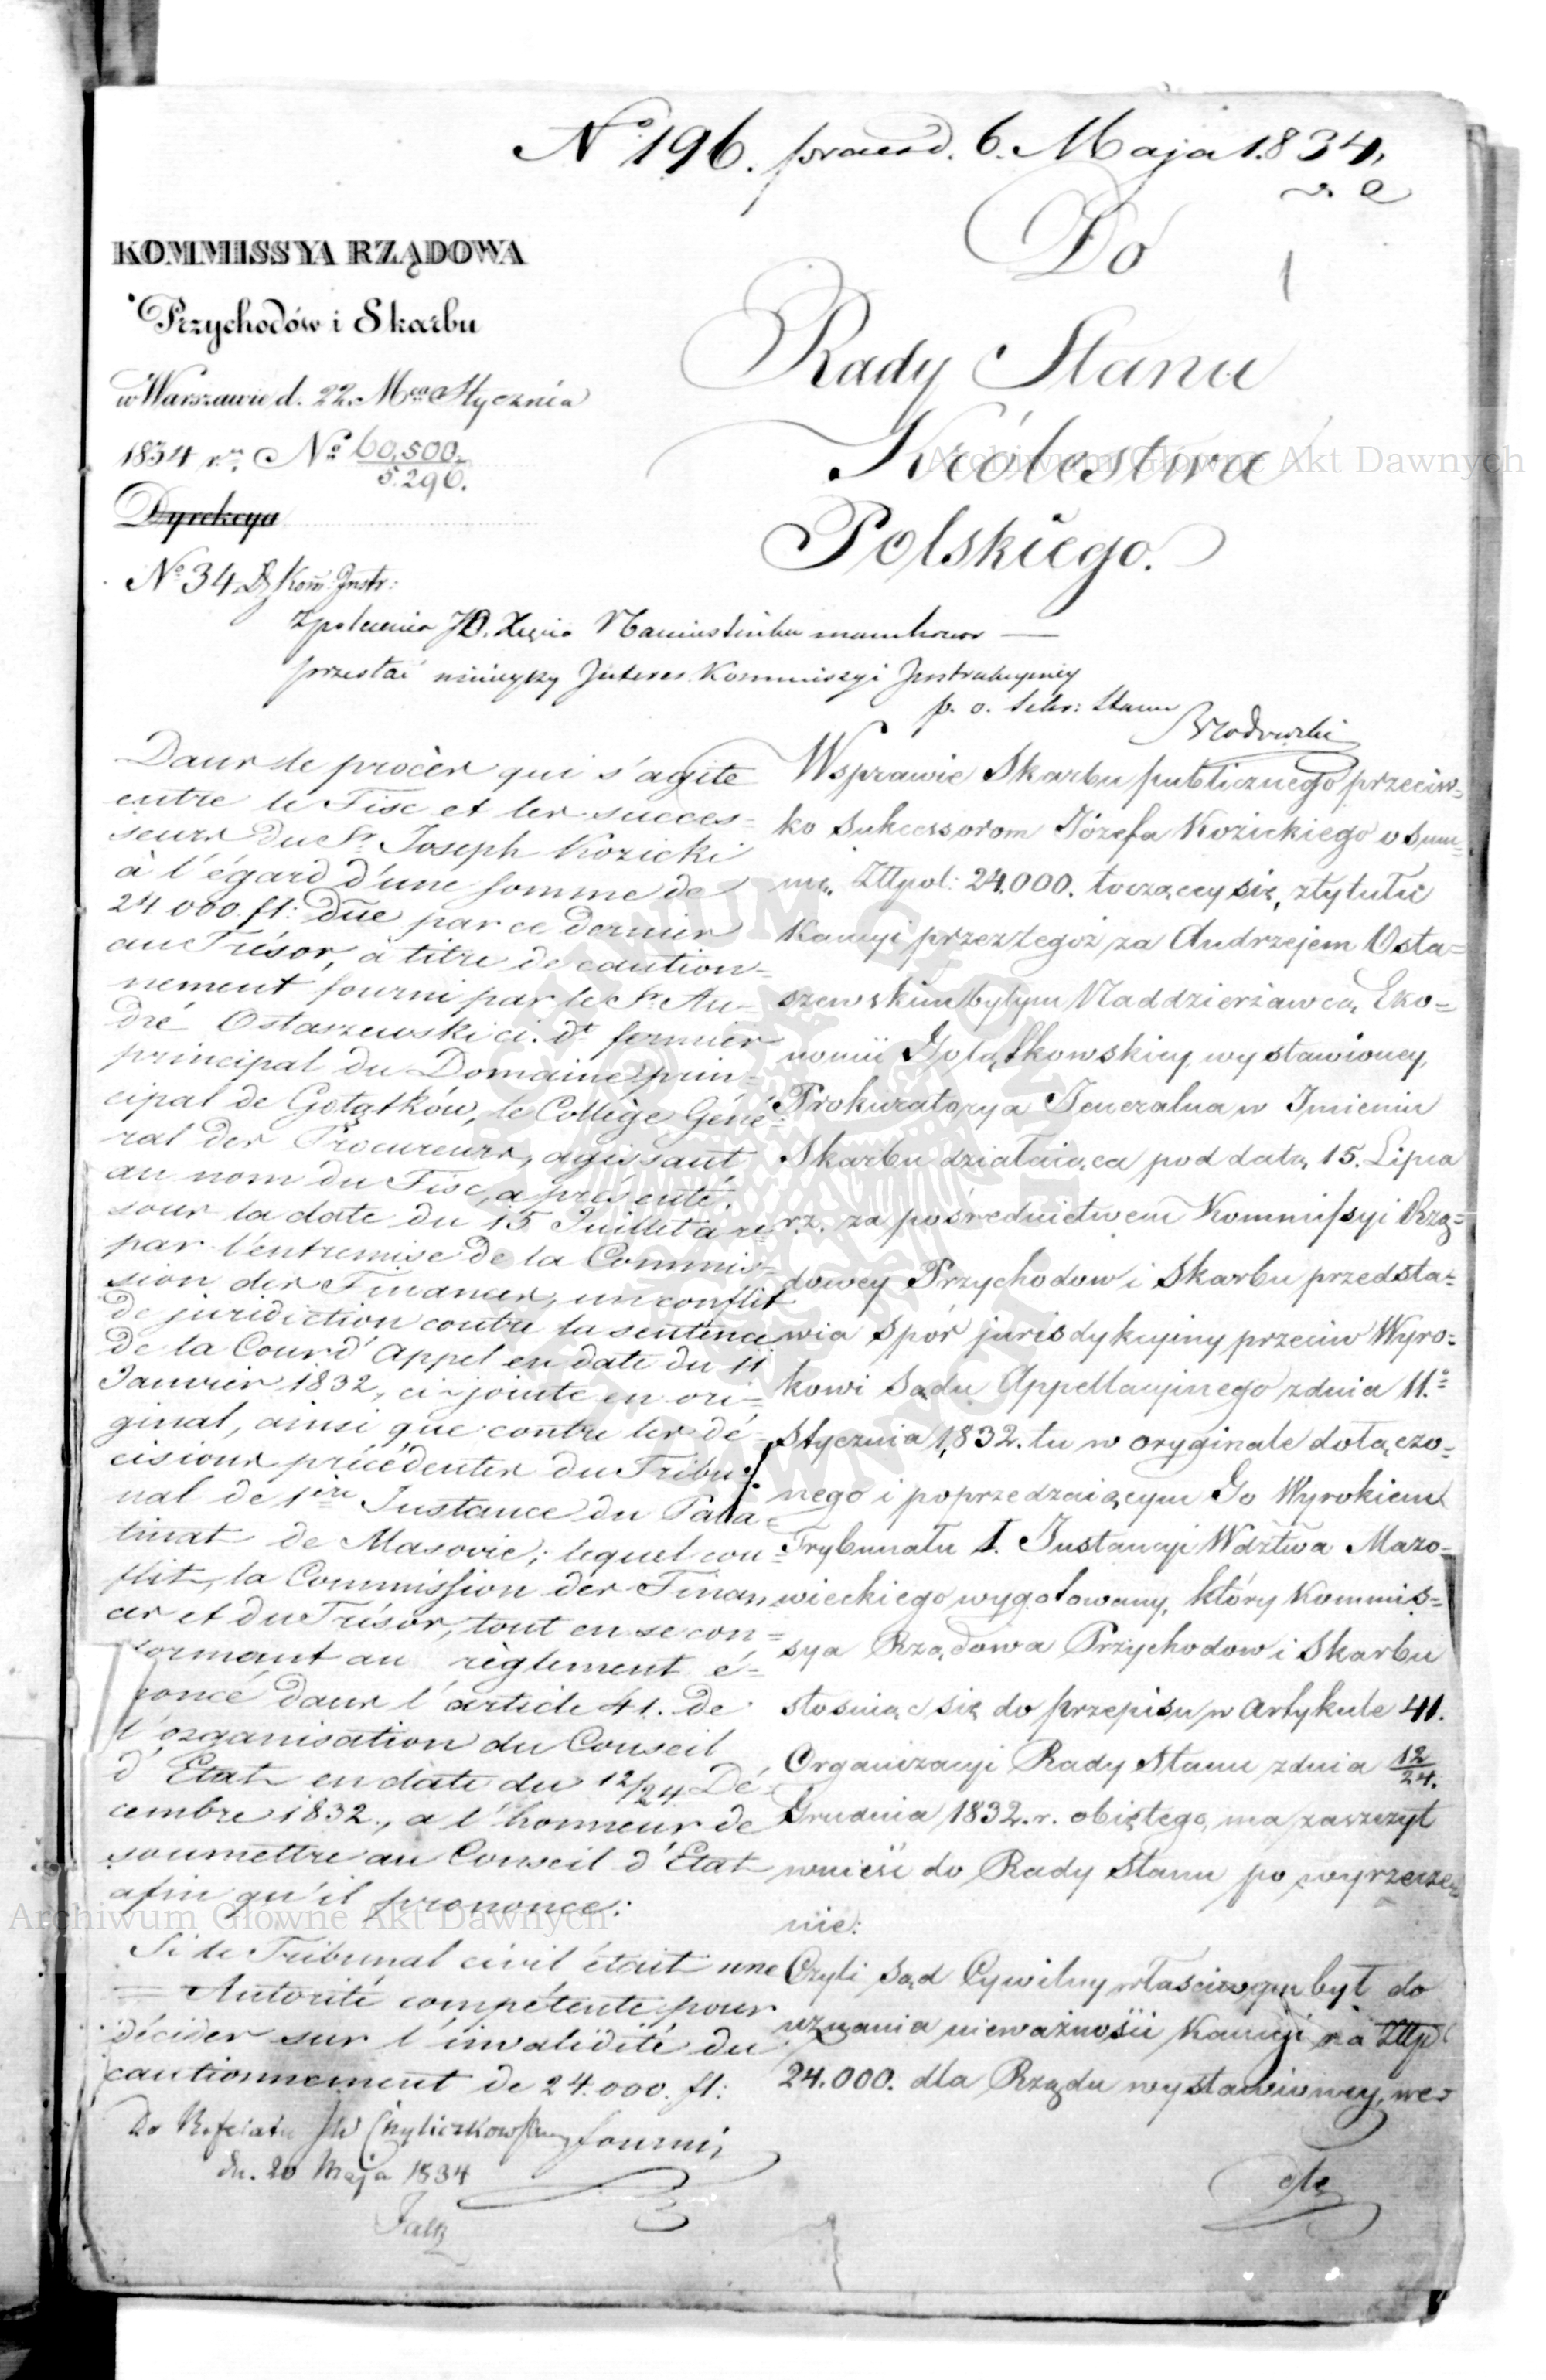 No 196. praes d. 6. Maja 1834.
KOMMISSYA RZĄDOWA
Przychodów i Skarbu
w Warszawie d. 22. Mca Stycznia
1834 r. No 60,500.
5.296.
Dyrekcya
No 34 Kom: Instr:
Do
Rady Stanu
Królestwa
Polskiego.
1
Z polecenia JO. Xięcia Namiestnika mam honor
przesłać ninieyszy Interes Kommissyi Instrukcyiney
p. o. Sekr: Stanu
Brodowski
Dans le procès qui s'agite
entre le Fisc et les succes=
seurs du Sr Joseph Kozicki
à l'égard d'une somme de
24 000. fl: düe par ce dernier
au Trésor, à titre de caution=
nement fourni par le Sr An=
dré Ostaszewski ci. dt fermier
principal du Domaine prin=
cipal de Gołątków, le Collège Géné=
ral des Procureurs, agissant
au nom du Fisc, a présenté.
sous la date du 15 Juillet a. c.
par l'entremise de la Commis=
sion des Finances, un conflit
de juridiction contre la sentence
de la Cour d'Appel en date du 11
Janvier 1832, ci-jointe en ori=
ginal, ainsi que contre les dé=
cisions précédentes du Tribu=
nal de 1ère Instance du Pala=
tinat de Masovie; lequel con=
flit, la Commission des Finan=
ces et du Trésor, tout en se con=
formant au règlement é=
noncé dans l'article 41. de
l'organisation du Conseil
d'Etat en date du 12/24 Dé=
cembre 1832., a l'honneur de
soumettre au Conseil d'Etat
afin qu'il prononce:
Si le Tribunal civil était une
= Autorité compétente pour
décider sur l'invalidité du
cautionnement de 24.000. fl:
fourni
W sprawie Skarbu publicznego przeciw=
ko Sukcessorom Józefa Kozickiego o Sum=
mę Złtpol: 24.000. toczącey się, z tytułu
Kaucyi przez tegoż za Andrzejem Osta=
szewskim byłym Naddzierżawcą Eko=
nomii Gołątkowskiey wystawioney,
Prokuratorya Jeneralna w Imieniu
Skarbu działaiąca pod datą 15. Lipca
r. z. za pośrednictwem Kommissyi Rzą=
dowey Przychodow i Skarbu przedsta=
wia Spór jurisdykcyiny przeciw Wyro=
kowi Sądu Appellacyinego z dnia 11.
Stycznia 1832. tu w oryginale dołączo=
nego i poprzedzaiącym Go Wyrokiem
Trybunału I. Instancyi Wdztwa Mazo=
wieckiego wygotowany, który Kommis=
sya Rządowa Przychodow i Skarbu
stosuiąc się do przepisu w Artykule 41.
Organizacyi Rady Stanu z dnia 12/24.
Grudnia 1832. r. obiętego, ma zaszczyt
wnieść do Rady Stanu po wyrzecze=
nie:
Czyli Sąd Cywilny właściwym był do
uznania nieważności Kaucyi na Złtp
24.000. dla Rządu wystawioney, we=
dle
Do Referatu JW
dn. 20 Maja 1834
Archiwum Główne Akt Dawnych
Archiwum Główne Akt Dawnych